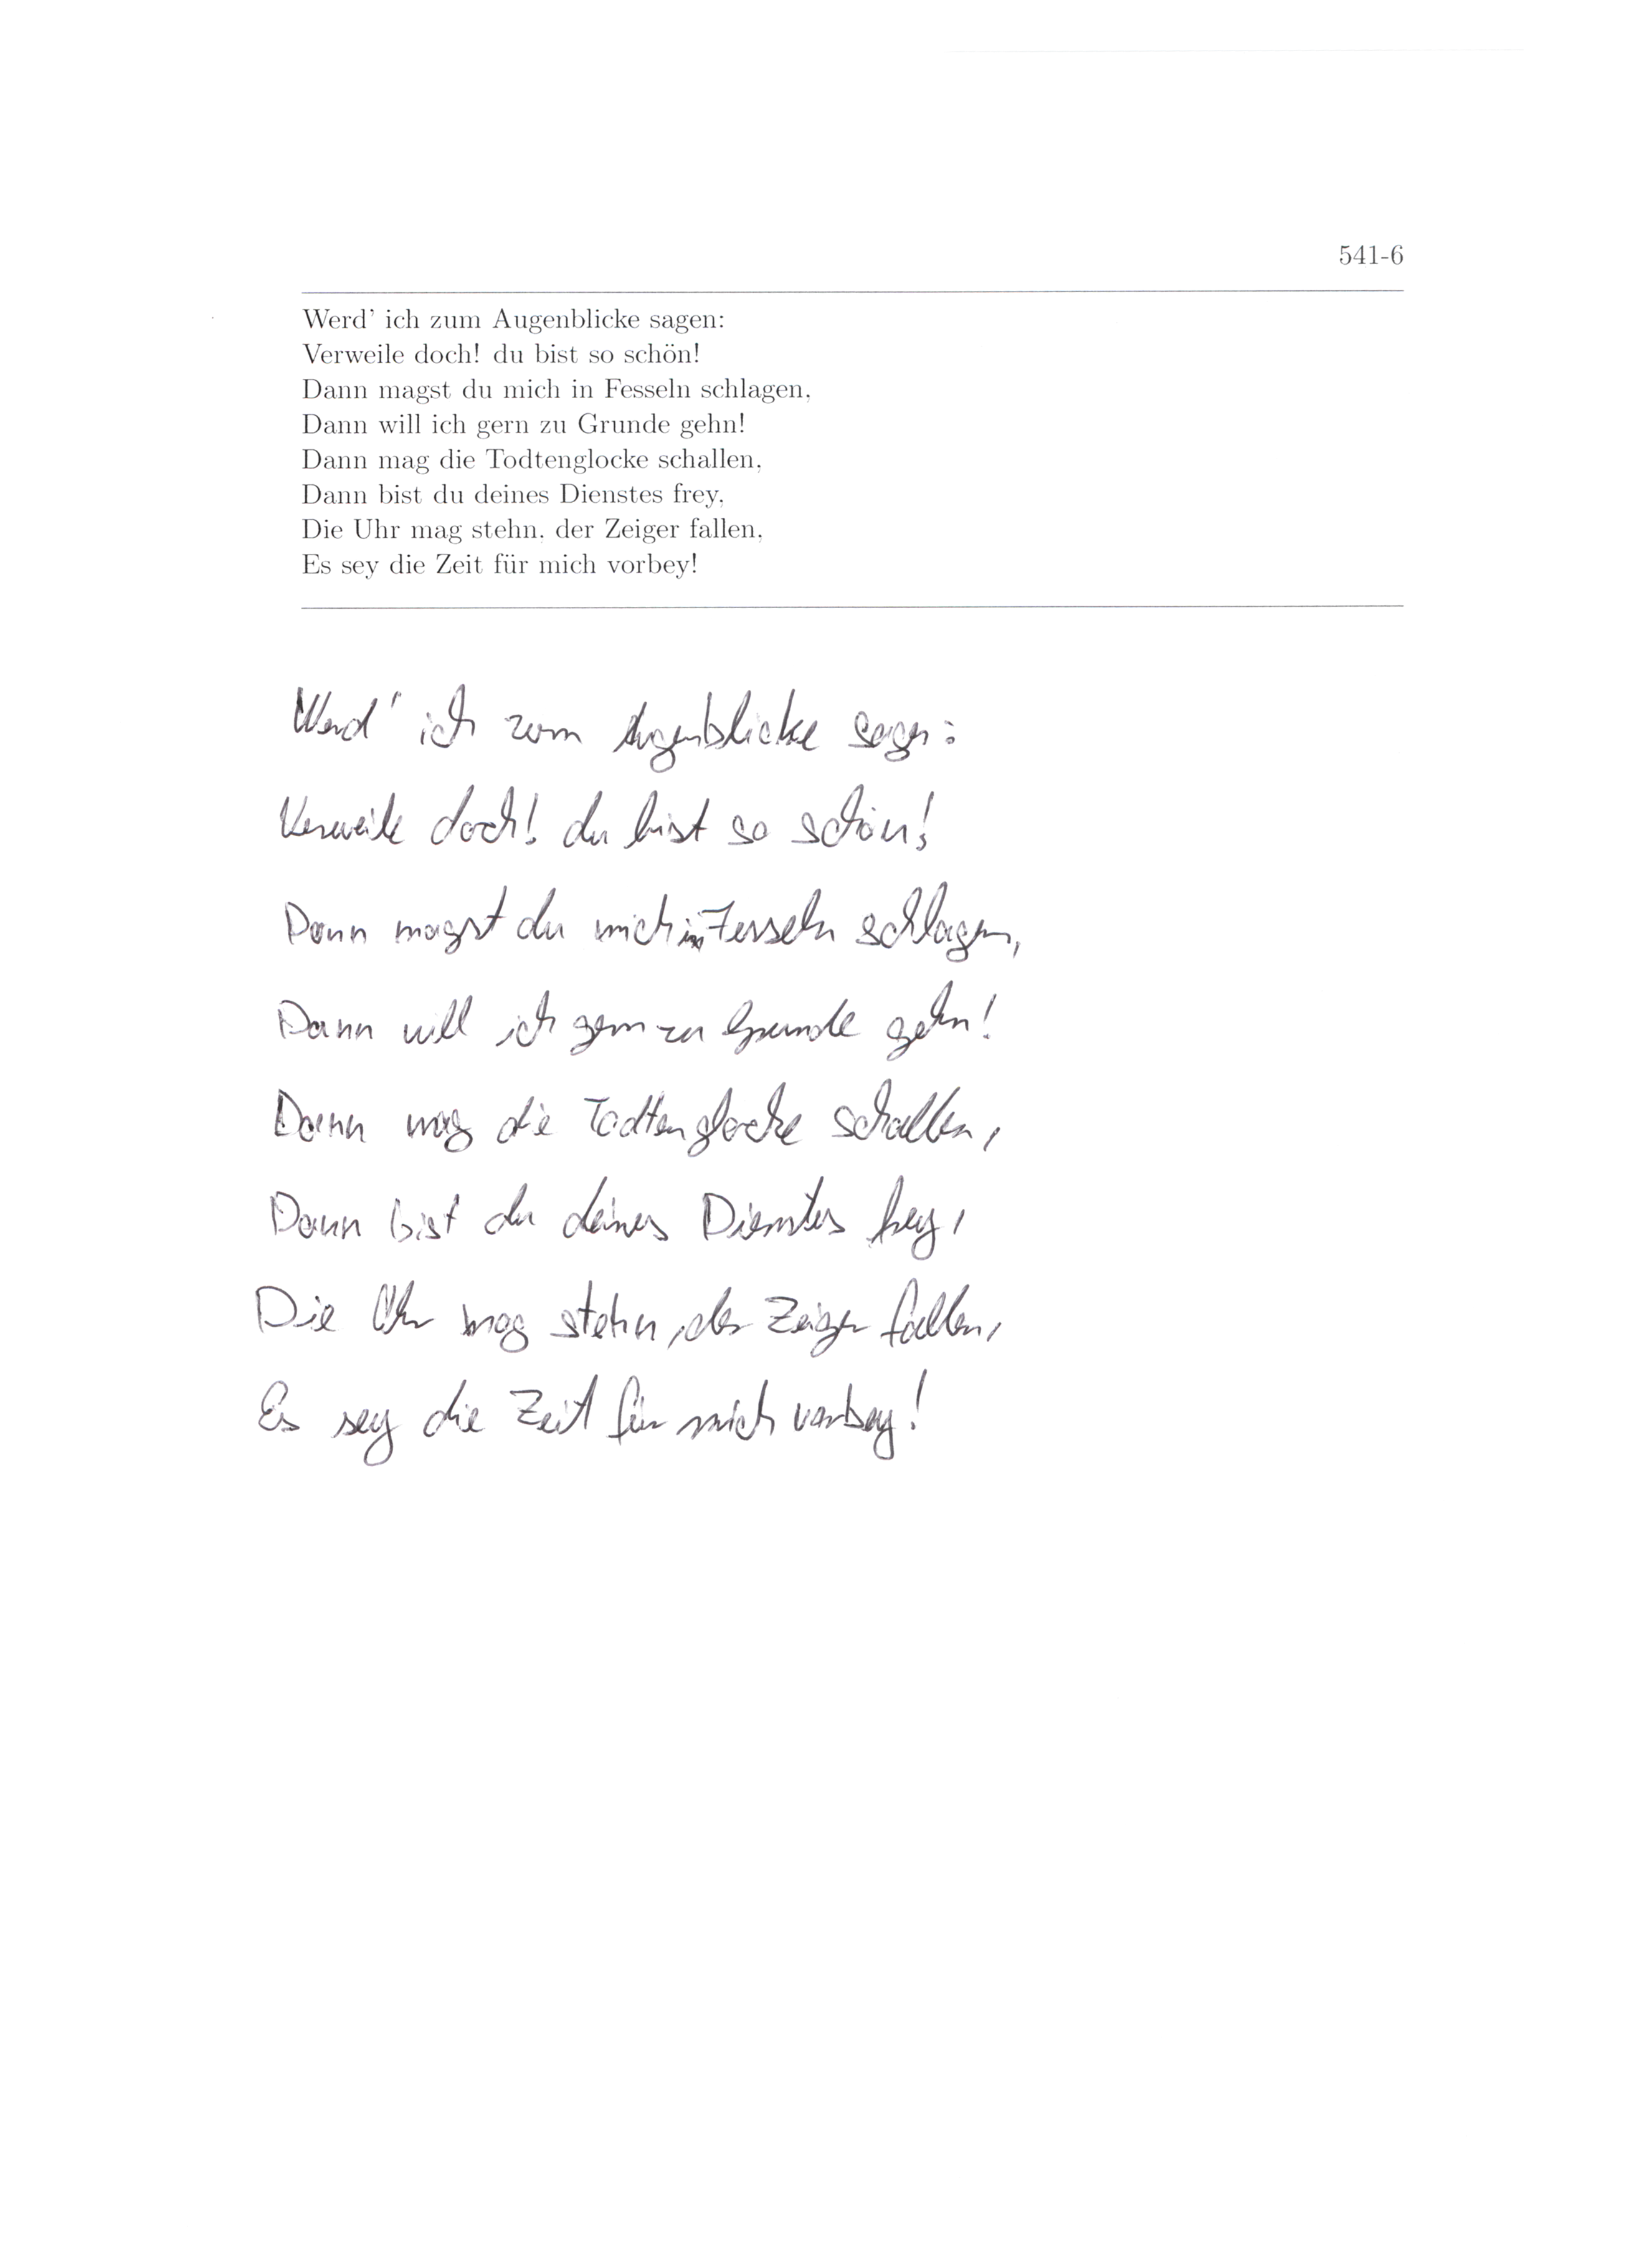 541-6
Werd' ich zum Augenblicke sagen:
Verweile doch! du bist so schön!
Dann magst du mich in Fesseln schlagen,
Dann will ich gern zu Grunde gehn!
Dann mag die Todtenglocke schallen,
Dann bist du deines Dienstes frey,
Die Uhr mag stehn, der Zeiger fallen,
Es sey die Zeit für mich vorbey!
Werd' ich zum Augenblicke sagen:
Verweile doch! du bist so schön!
Dann magst du mich in Fesseln schlagen,
Dann will ich gern zu Grunde gehn!
Dann mag die Todtenglocke schallen,
Dann bist du deines Dienstes frey,
Die Uhr mag stehn, der Zeiger fallen,
Es sey die Zeit für mich vorbey!